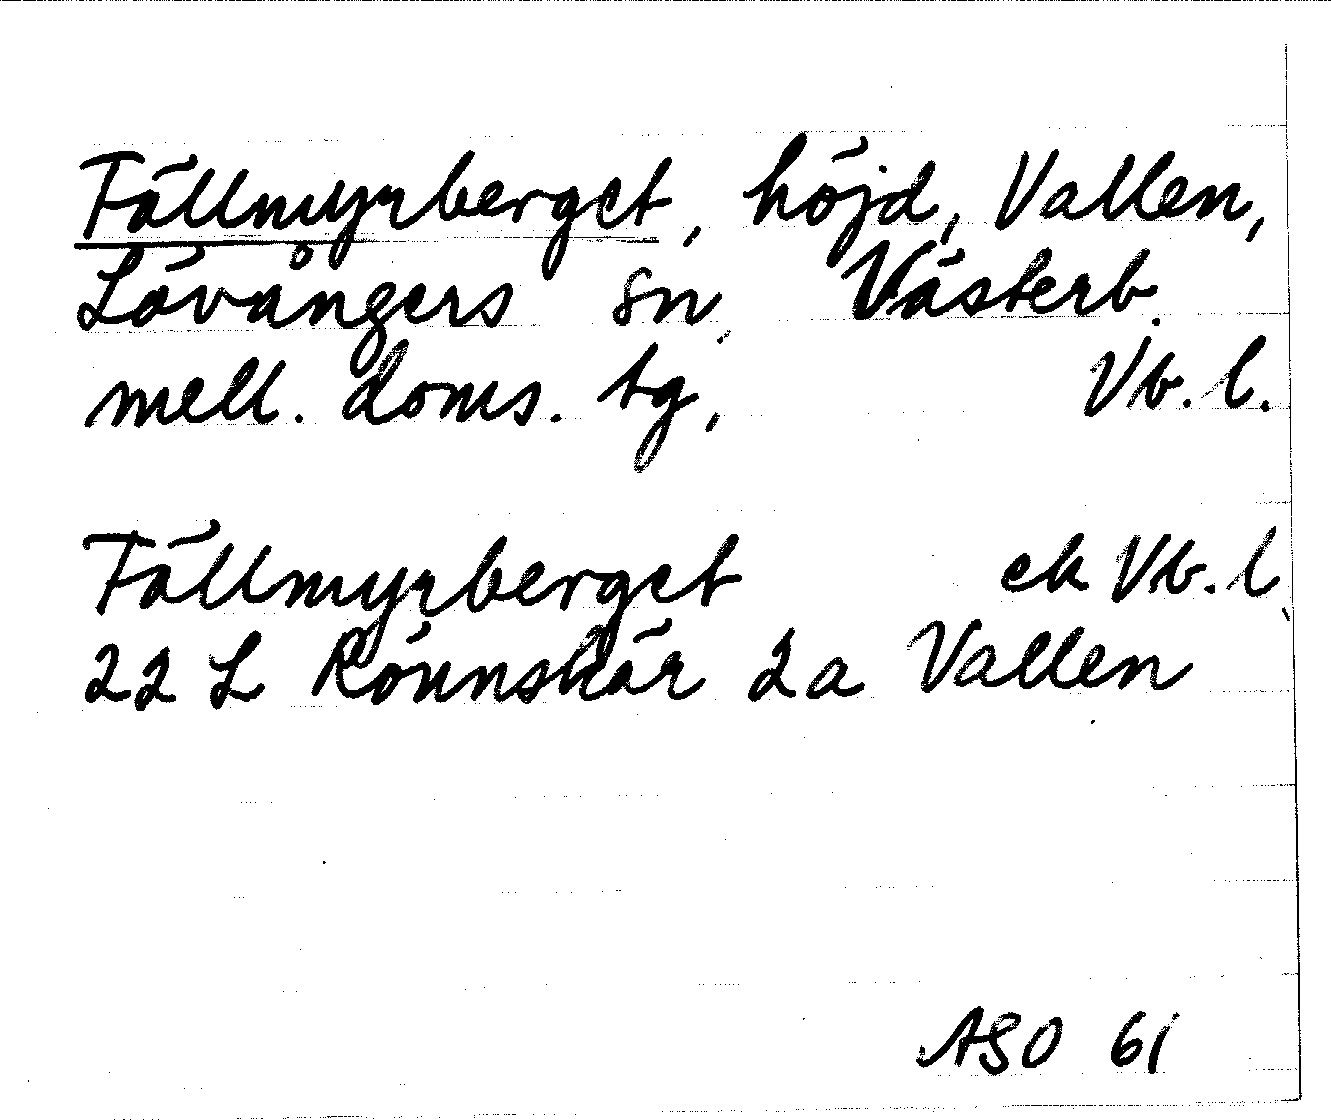 Fällmyrberget, höjd, Vallen,
Lövångers sn, Västerb.
mell. doms. tg, Vb. l.
Fällmyrberget ek Vb. l.
22 L Rönnskär 2a Vallen
ASO 61